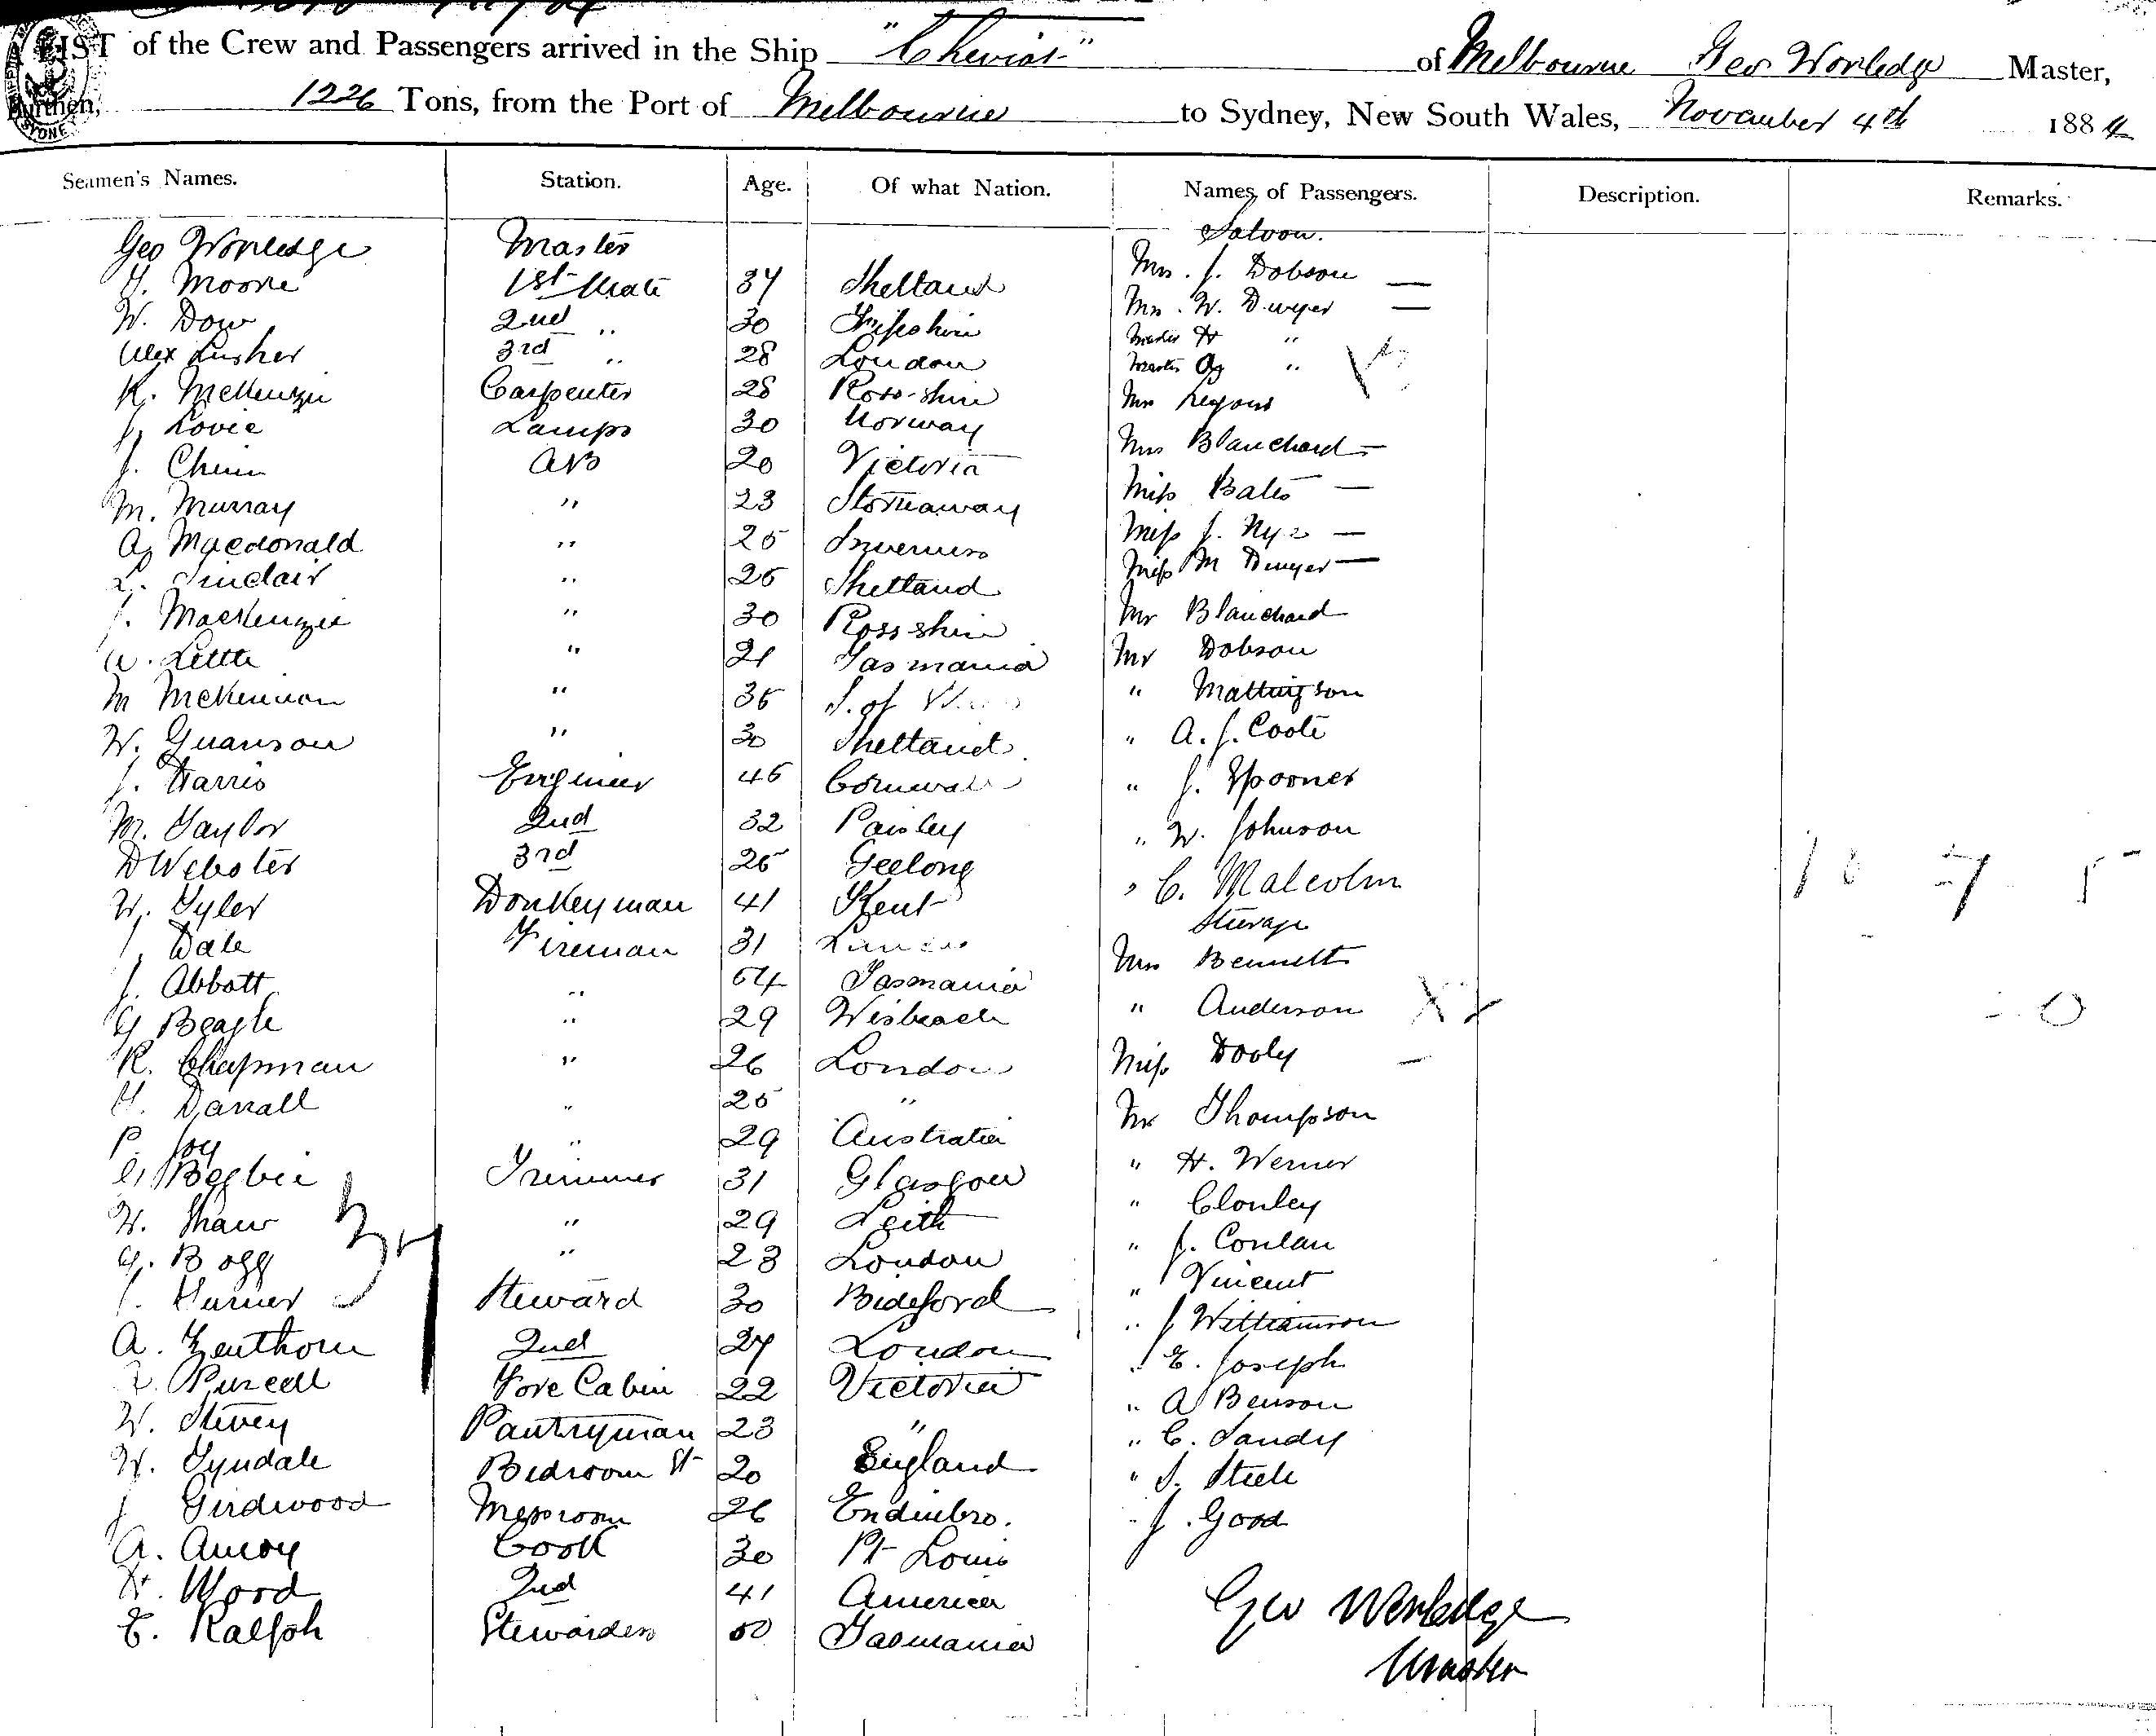 LIST of the Crew and Passengers arrived in the Ship "Cheviot" of Melbourne Geo Worledge Master,
Burthen, 1226 Tons, from the Port of Melbourne to Sydney, New South Wales, November 4th 1884
Seamen's Names. Station. Age. Of what Nation. Names of Passengers. Description. Remarks.
Geo Worledge Master Saloon.
Moore 1st Mate 34 Shetland Mrs. J. Dobson —
W. Dow 2nd " 30 Fifeshire Mrs. W. Dwyer —
Alex Lusher 3rd " 28 London Master H "
K. McKenzie Carpenter 28 Ross-shire Master "
J. Lovie Lamps 30 Norway Mrs Lyons
J. AB 20 Victoria Mrs Blanchard —
M. Murray " 23 Stornaway Miss Bates —
A. Macdonald " 25 Inverness Miss J. Nyz —
L. Sinclair " 25 Shetland Miss M Dwyer —
J. MacKenzie " 30 Ross shire Mr Blanchard
Little " 21 Tasmania Mr Dobson
M McKinnon " 35 I. of " Mattingson
W. Guanson " 30 Shetland " A. J. Coote
J. Harris Engineer 45 Cornwall " J. Spooner
M. Taylor 2nd 32 Paisley " W. Johnson
D Webster 3rd 25 Geelong " C. Malcolm
W. Tyler Donkeyman 41 Kent Steerage
J. Dale Fireman 31 Mrs Bennett
J. Abbott " 54 Tasmania " Anderson
G Beagle " 29 Wisbeach Miss Dooly —
R. Chapman " 26 London Mr Thompson
H. Darrall " 25 " " H. Werner
P. Joy " 29 Australia " Clonley
Begbie Trimmer 31 Glasgow " J. Conlan
W. Shaw " 29 Leith " Vincent
G. Bogg " 23 London " J Williamson
J. Turner Steward 30 Bideford " E. Joseph
A. Zenthorn 2nd 27 London " A Benson
Purcell Fore Cabin 22 Victoria " C. Sandy
W. Stivey Pantryman 23 " " S. Steele
W. Tyndale Bedroom St 20 England " J. Good
J Girdwood Messroom 26 Endinbro.
A. Amoy Cook 30 Pt Louis
H. Wood 2nd 41 America Geo Worledge
E. Ralph Stewardess 50 Tasmania Master